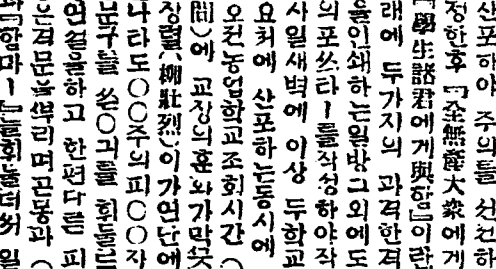 산포하야 주의를 선전하
정한후 『全無産大衆에게
『學生諸君에게 與함』이란
래에 두가지의 과격한격
를인쇄하는일방그외에도
의포쓰타ー를작성하야작
사일새벽에 이상 두학교
요처에 산포하는동시에
오전농업학교조회시간(
間)에 교장의훈화가막끗
장렬(柳壯烈)이가연단에
나타도○○주의피○○자
문구를 쓴○긔를 휘둘르
연설을하고 한편다른 피
은격문을뿌리며곤봉과(
과『함마ー』를휘둘러 일